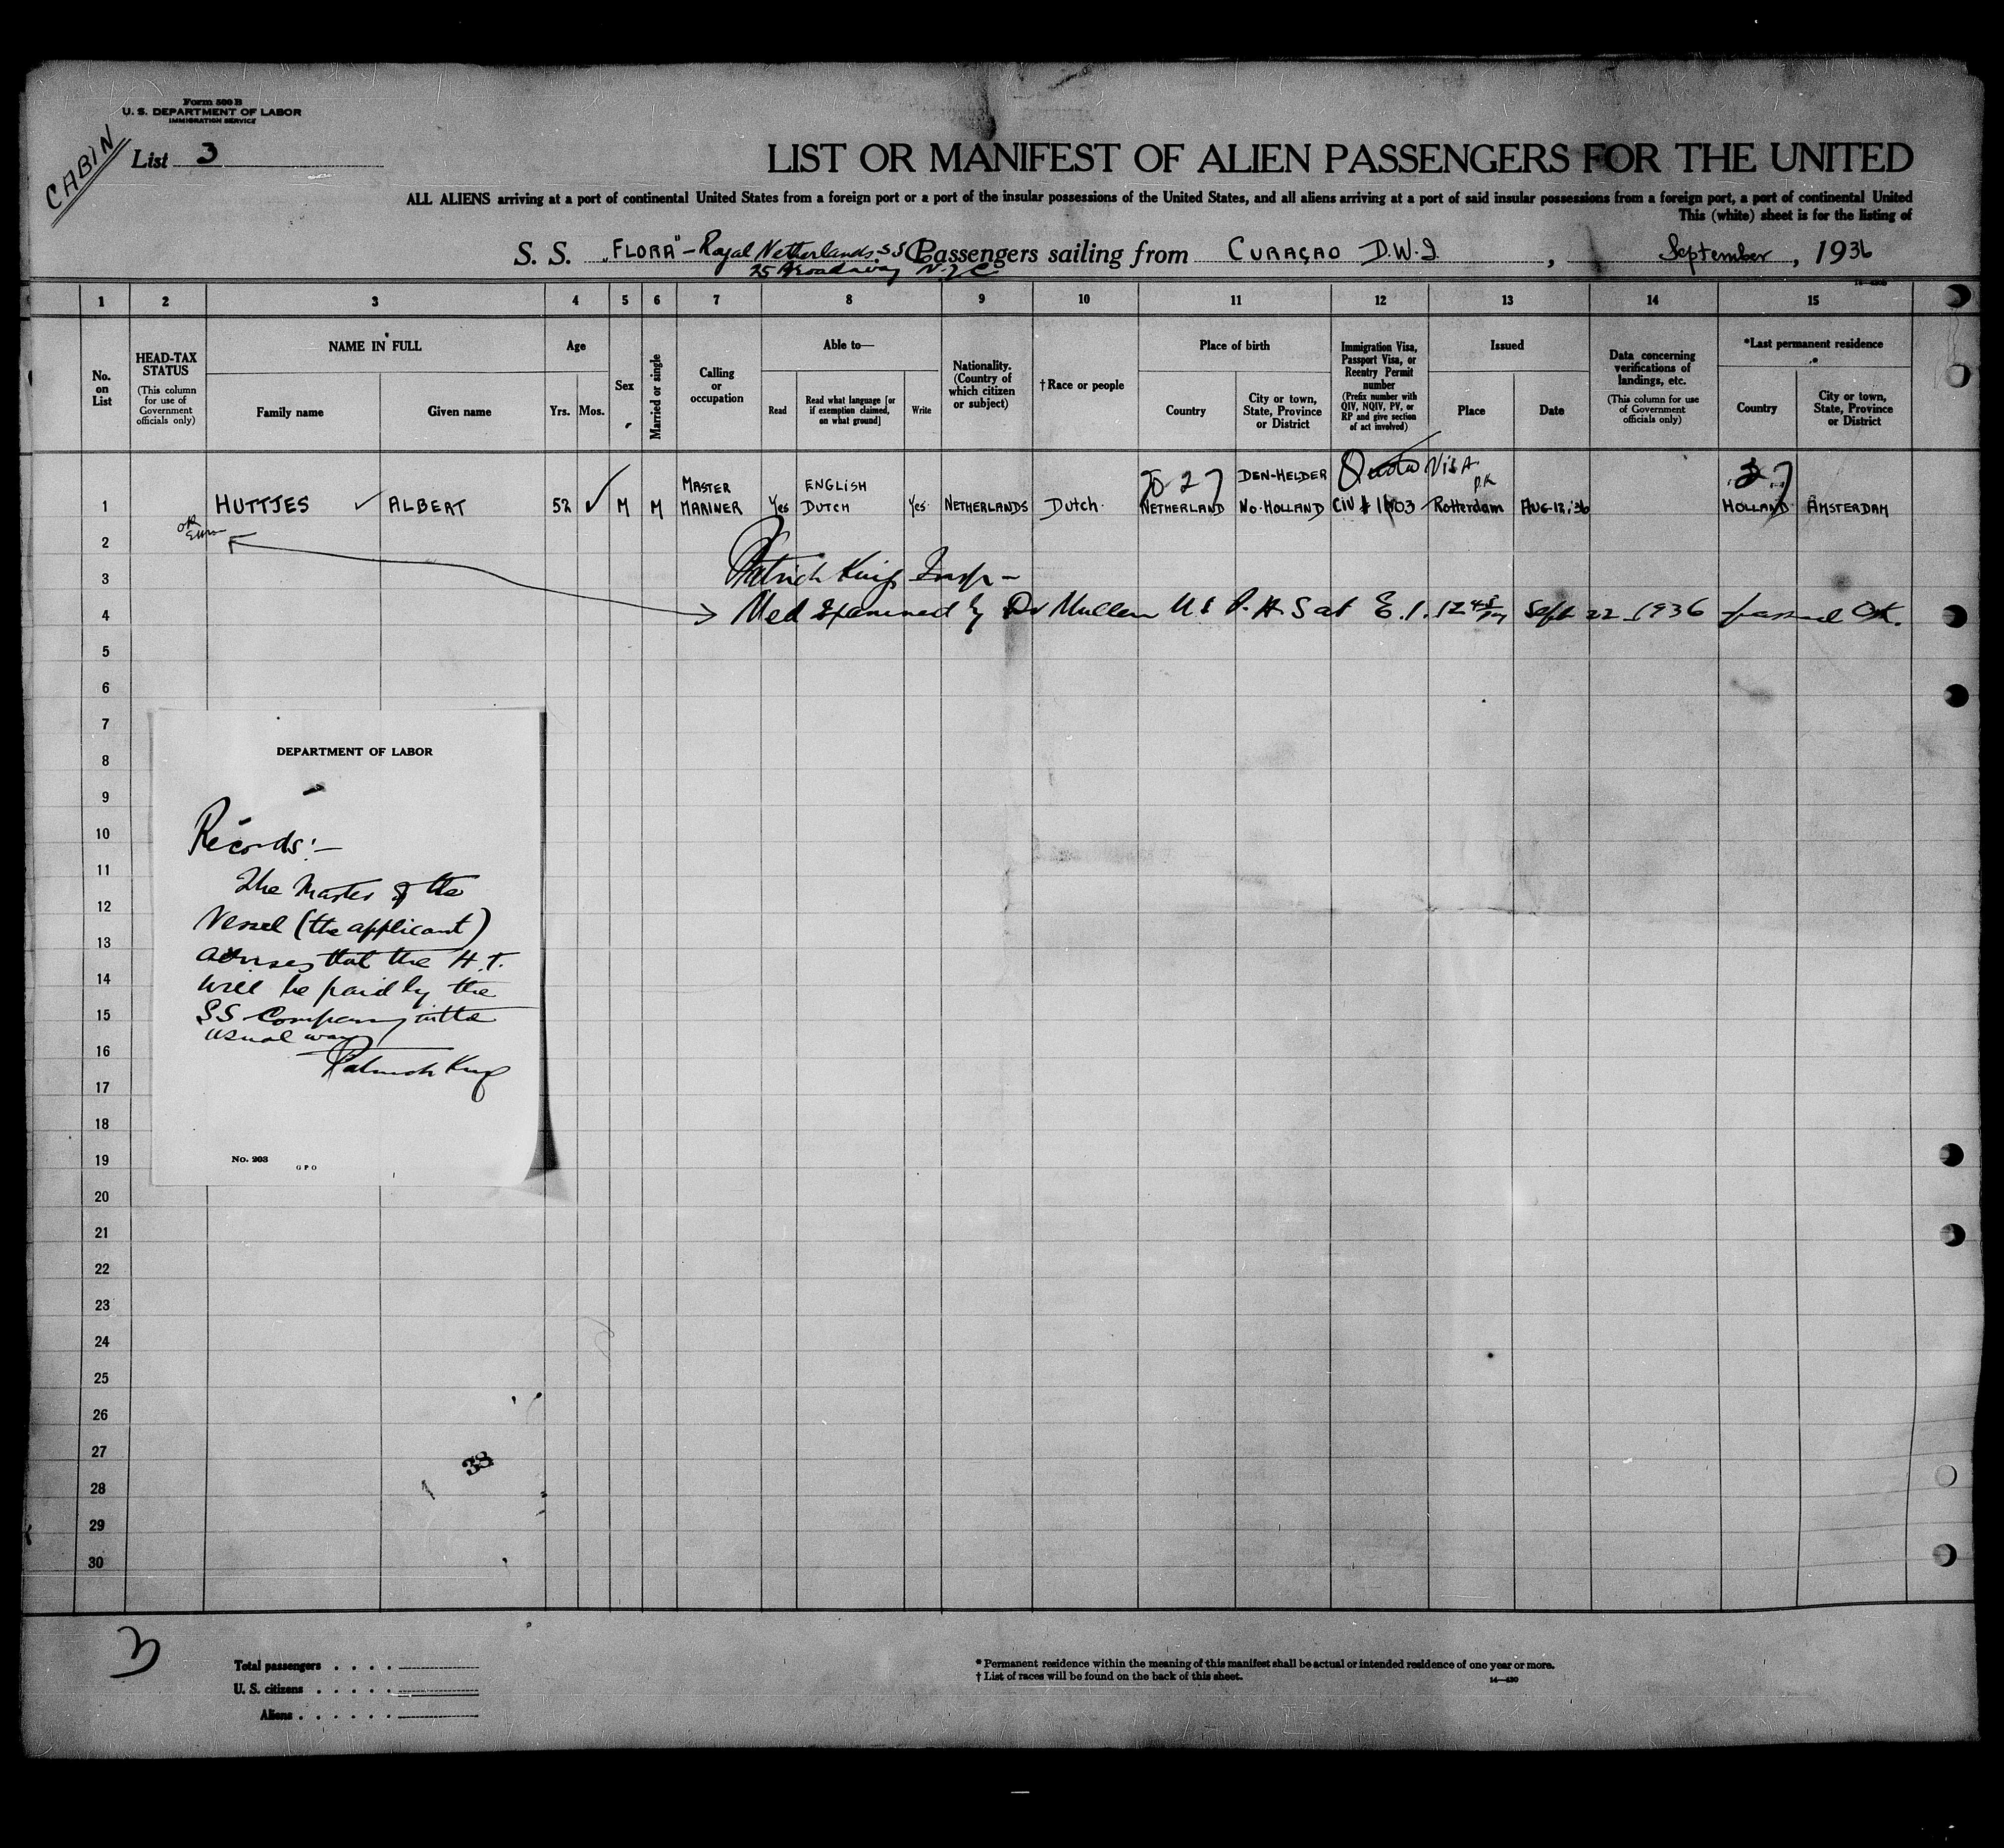 Form 500 B
U. S. DEPARTMENT OF LABOR
IMMIGRATION SERVICE
CABIN
List 3
LIST OR MANIFEST OF ALIEN PASSENGERS FOR THE UNITED
ALL ALIENS arriving at a port of continental United States from a foreign port or a port of the insular possessions of the United States, and all aliens arriving at a port of said insular possessions from a foreign port, a port of continental United
This (white) sheet is for the listing of
S. S. "FLORA" - Royal Netherlands S S Co Passengers sailing from CURAÇAO D.W.I , September , 1936
25 Broadway N.Y.C.
1 2 3 4 5 6 7 8 9 10 11 12 13 14 15
No. on List
HEAD-TAX STATUS
(This column for use of Government officials only)
NAME IN FULL
Family name
Given name
Age
Yrs. Mos.
Sex
Married or single
Calling or occupation
Able to—
Read
Read what language [or if exemption claimed, on what ground]
Write
Nationality. (Country of which citizen or subject)
†Race or people
Place of birth
Country
City or town, State, Province or District
Immigration Visa, Passport Visa, or Reentry Permit number
(Prefix number with QIV, NQIV, PV, or RP and give section of act involved)
Issued
Place
Date
Data concerning verifications of landings, etc.
(This column for use of Government officials only)
*Last permanent residence
Country
City or town, State, Province or District
1 HUTTJES ALBERT 52 M M MASTER MARINER Yes ENGLISH DUTCH Yes NETHERLANDS Dutch. NETHERLAND DEN-HELDER NO-HOLLAND Quota VISA P.K. CIV # 1403 Rotterdam AUG-12,'36 HOLLAND AMSTERDAM
2
3 Patrick King Insp -
4 Med Examined by Dr Mullen U S P. H. S at E. I. 12 45 Sept 22 1936 passed OK.
5
6
7
8
9
10
11
12
13
14
15
16
17
18
19
20
21
22
23
24
25
26
27
28
29
30
DEPARTMENT OF LABOR
Records:-
The Master of the
Vessel (the applicant)
advises that the H.T.
will be paid by the
SS Company in the
usual way
Patrick King
No. 203
GPO
38
3
Total passengers . . . .
U. S. citizens . . . . .
Aliens . . . . . .
* Permanent residence within the meaning of this manifest shall be actual or intended residence of one year or more.
† List of races will be found on the back of this sheet.
14—430